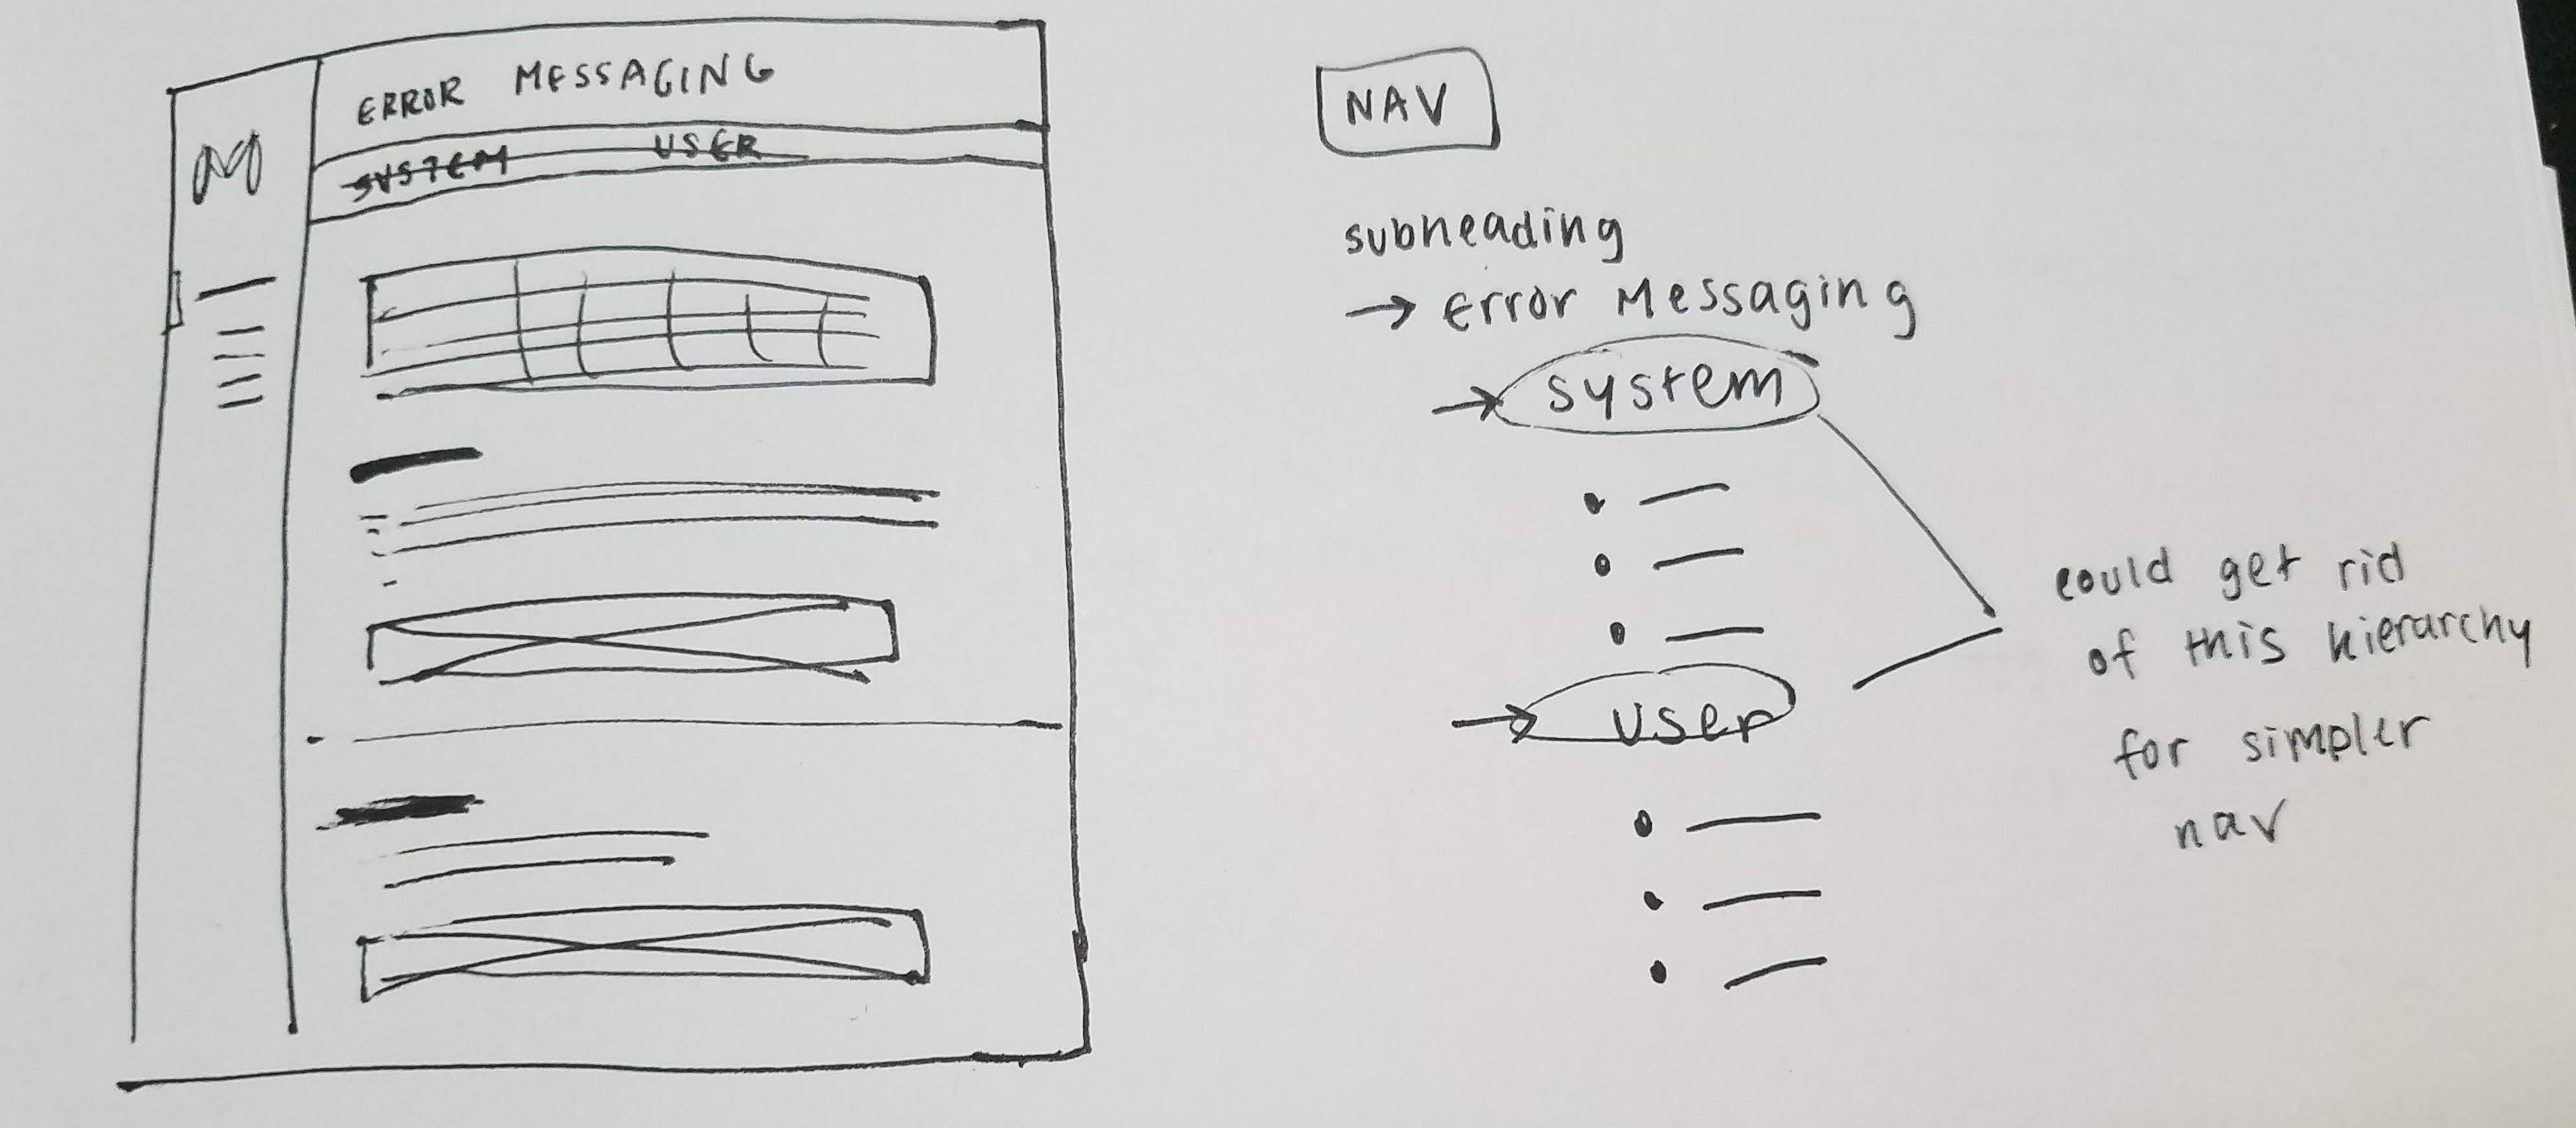 ERROR MESSAGING
SYSTEM USER
NAV
subheading
→ Error Messaging
→ system
→ user
could get rid
of this hierarchy
for simpler
nav